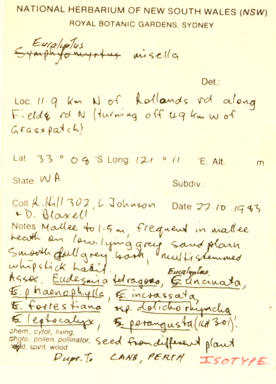 NATIONAL HERBARIUM OF NEW SOUTH WALES (NSW)
ROYAL BOTANIC GARDENS, SYDNEY
Eucalyptus
Symphyomyrtus misella
Det.:
Loc. 11.9 km N of Rollands rd along
Fields rd N (turning off 49 km W of
Grasspatch)
Lat. 33° 08 'S Long. 121° 11 'E. Alt. m
State: WA
Subdiv.:
Coll. K. Hill 302, L. Johnson Date: 22.10.1983
& D. Blaxell
Notes Mallee to 1.5m, frequent in mallee
heath on low-lying grey sand plain
Smooth dull grey bark, multistemmed
whipstick habit.
Eucalyptus
Assoc. Eudesmia tetragona, E. uncinata,
E. phaenophylla, E. incrassata,
E. forrestiana ssp. dolichorhyncha,
E. leptocalyx, E. perangusta (KH 301).
chem., cytol., living,
photo., pollen, pollinator, seed from different plant
seed, spirit, wood
Dups. To CANB, PERTH ISOTYPE